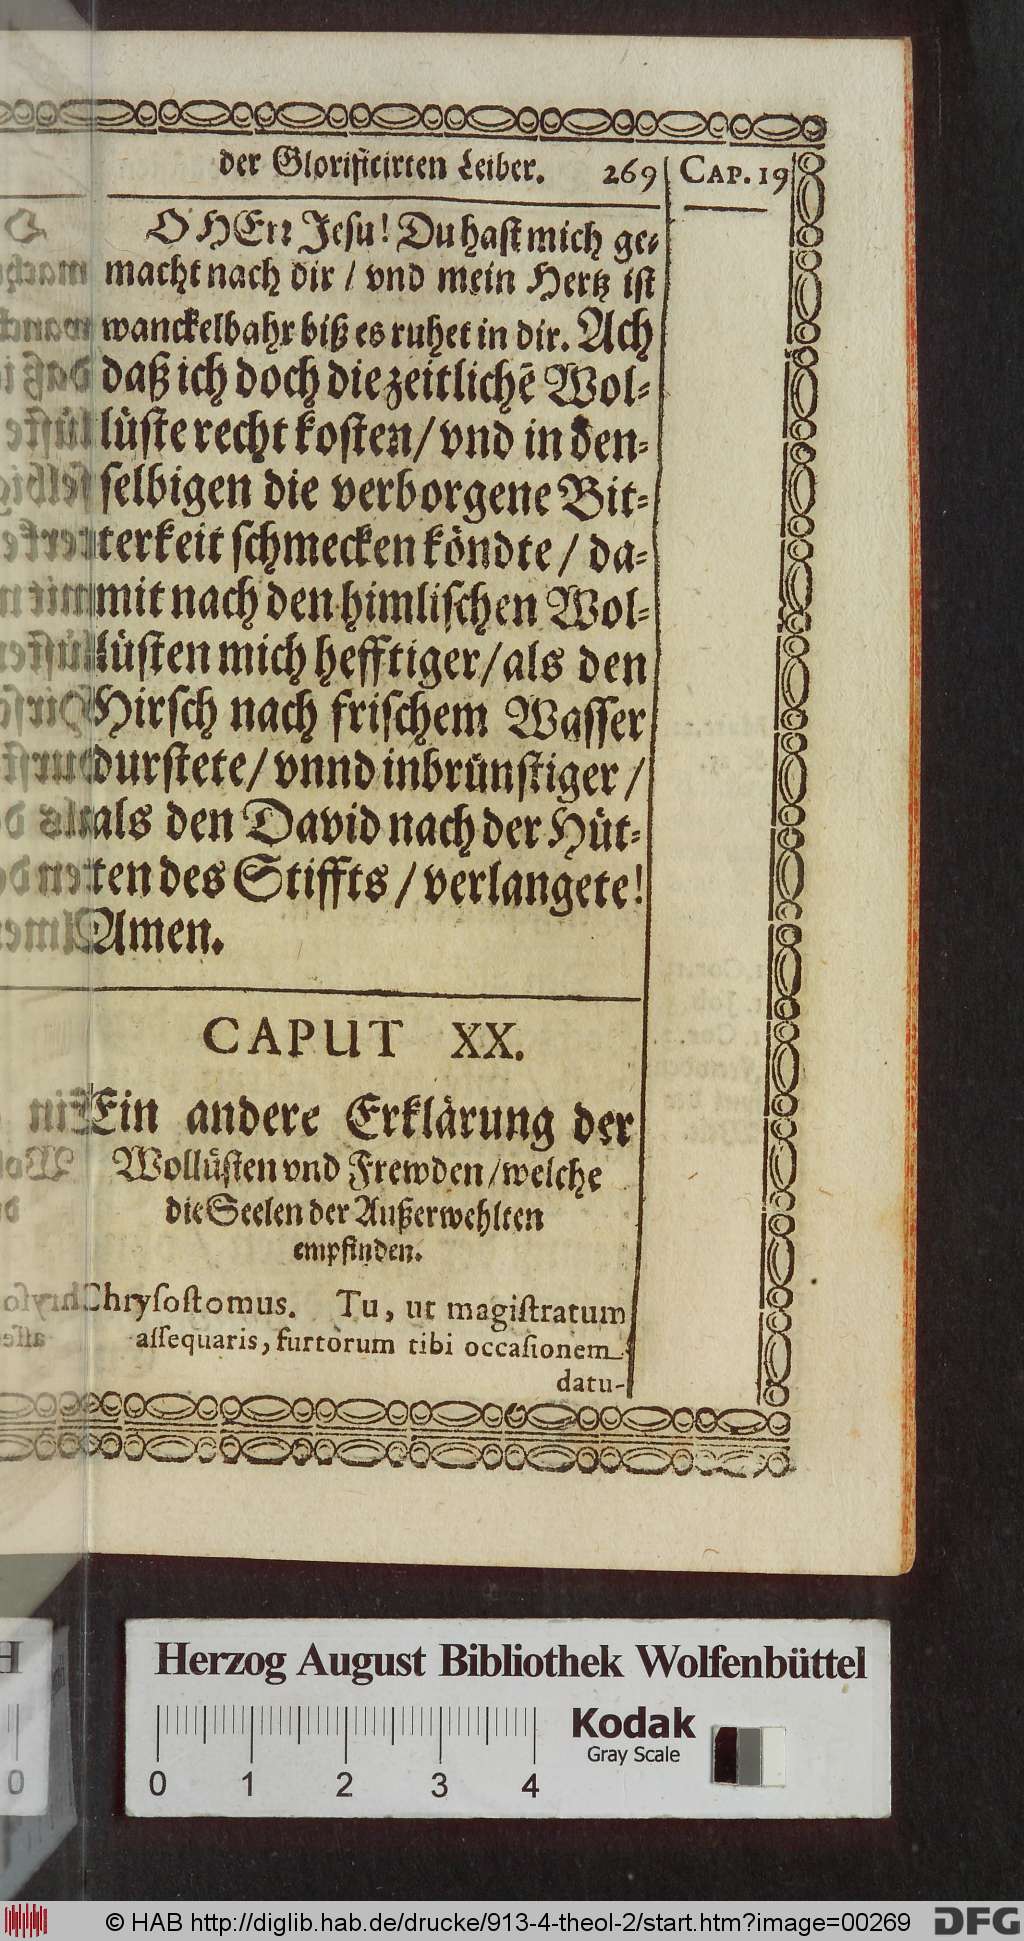 der Glorificirten Leiber. 269 CAP. 19
O HErr Jesu! Du hast mich ge-
macht nach dir / vnd mein Hertz ist
wanckelbahr biß es ruhet in dir. Ach
daß ich doch die zeitlichē Wol-
lüste recht kosten / vnd in den-
selbigen die verborgene Bit-
terkeit schmecken köndte / da-
mit nach den himlischen Wol-
lüsten mich hefftiger / als den
Hirsch nach frischem Wasser
durstete / vnnd inbrünstiger /
als den David nach der Hüt-
ten des Stiffts / verlangete!
Amen.
CAPUT XX.
Ein andere Erklärung der
Wollüsten vnd Frewden / welche
die Seelen der Außerwehlten
empfinden.
Chrysostomus. Tu, ut magistratum
assequaris, furtorum tibi occasionem
datu-
Herzog August Bibliothek Wolfenbüttel
Kodak
Gray Scale
0 1 2 3 4
© HAB http://diglib.hab.de/drucke/913-4-theol-2/start.htm?image=00269 DFG